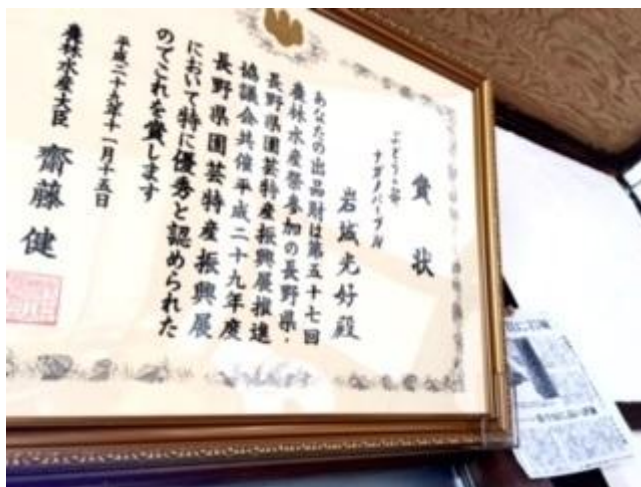 賞状
ぶどうの部
ナガノパープル
岩城光好殿
あなたの出品財は第五十七回
農林水産祭参加の長野県・
長野県園芸特産振興展推進
協議会共催平成二十九年度
長野県園芸特産振興展
において特に優秀と認められた
のでこれを賞します
平成二十九年十一月十五日
農林水産大臣 齋藤健